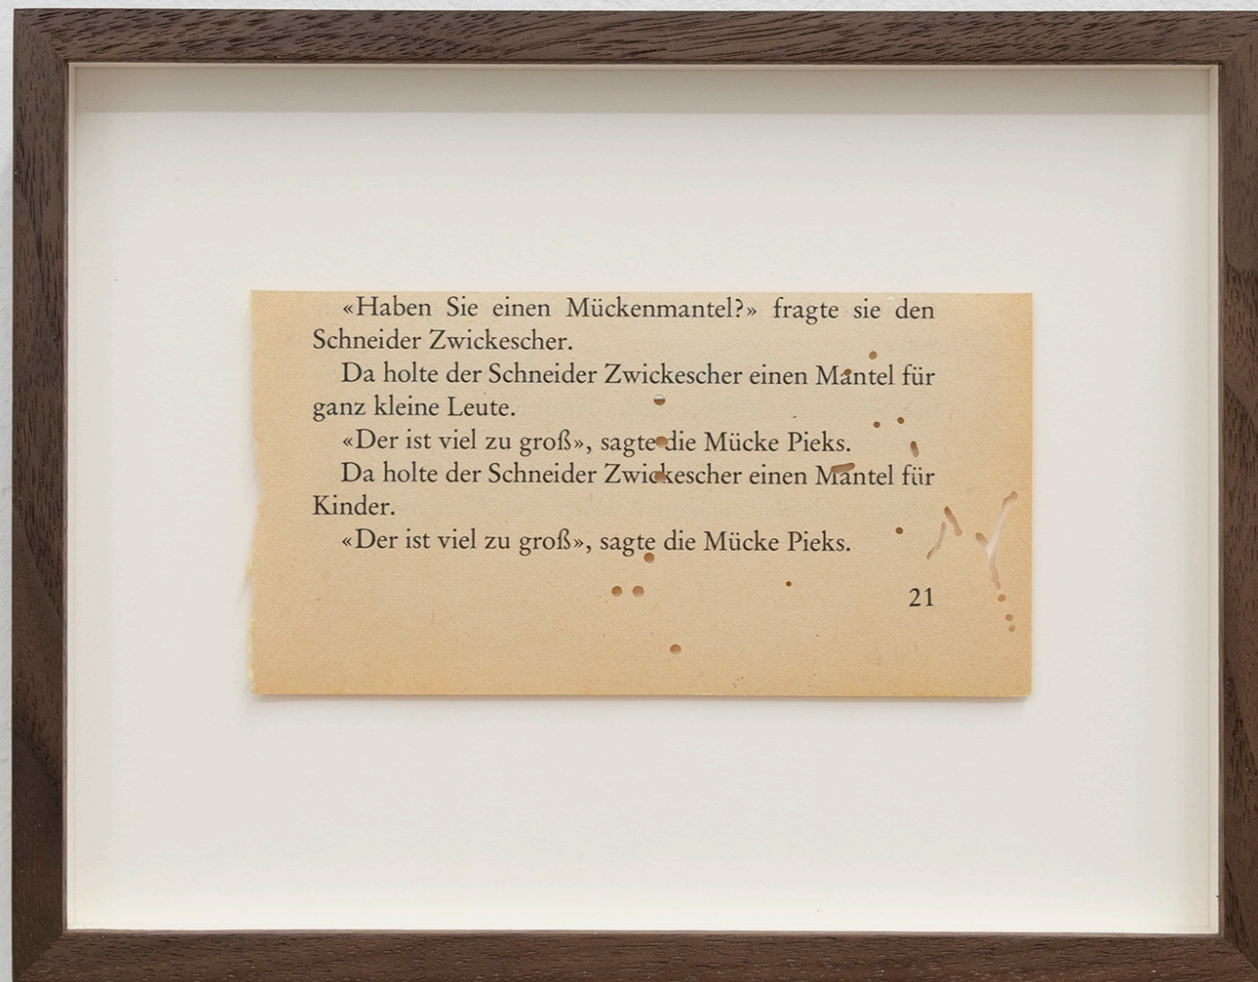 «Haben Sie einen Mückenmantel?» fragte sie den
Schneider Zwickescher.
Da holte der Schneider Zwickescher einen Mantel für
ganz kleine Leute.
«Der ist viel zu groß», sagte die Mücke Pieks.
Da holte der Schneider Zwickescher einen Mantel für
Kinder.
«Der ist viel zu groß», sagte die Mücke Pieks.
21